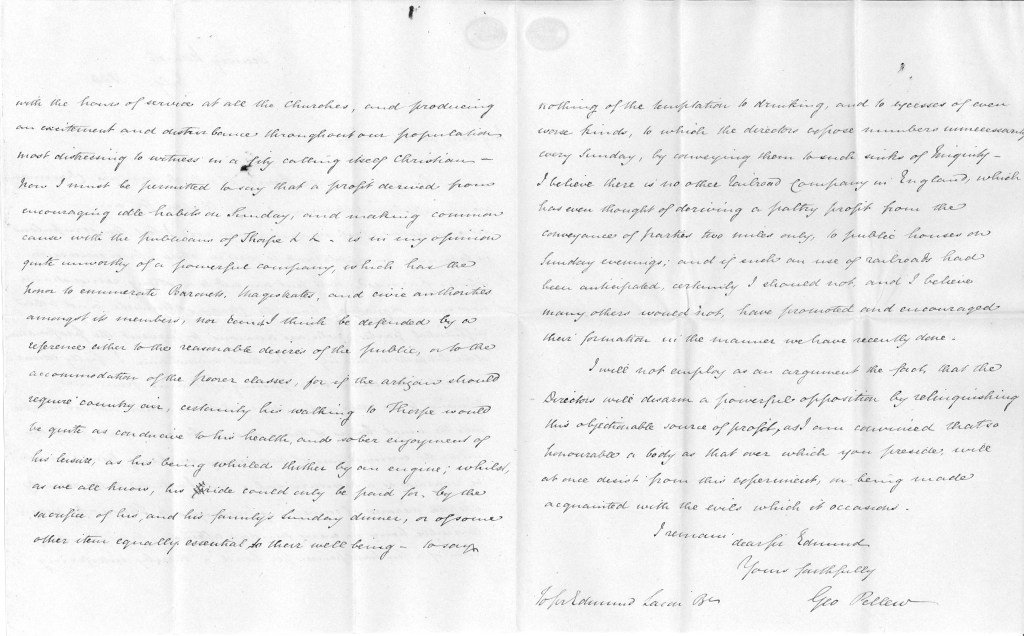 with the hours of service at all the churches, and producing
an excitement and disturbance throughout our population
most distressing to witness in a City calling itself Christian –
Now I must be permitted to say that a profit derived from
encouraging idle habits on Sunday, and making common
cause with the publicans of Thorpe &c &c – is in my opinion
quite unworthy of a powerful company, which has the
honor to enumerate Baronets, Magistrates, and civic authorities
amongst its members, nor can it I think be defended by a
reference either to the reasonable desires of the public, or to the
accommodation of the poorer classes, for if the artizan should
require country air, certainly his walking to Thorpe would
be quite as conducive to his health, and sober enjoyment of
his leisure, as his being whirled thither by an engine; whilst,
as we all know, his ride could only be paid for, by the
sacrifice of his, and his family's Sunday dinner, or of some
other item equally essential to their well being – to say
nothing of the temptation to drinking, and to excesses of even
worse kinds, to which the directors expose numbers unnecessarily
every Sunday, by conveying them to such sinks of iniquity –
I believe there is no other railroad Company in England, which
has even thought of deriving a paltry profit from the
conveyance of parties two miles only, to public houses on
Sunday evenings; and if such an use of railroads had
been anticipated, certainly I should not, and I believe
many others would not, have promoted and encouraged
their formation in the manner we have recently done –
I will not employ as an argument the fact, that the
Directors will disarm a powerful opposition by relinquishing
this objectionable source of profit, as I am convinced that so
honourable a body as that over which you preside, will
at once desist from this experiment, on being made
acquainted with the evils which it occasions –
I remain dear Sir Edmund
Yours faithfully
Geo Pellew
To Sir Edmund Lacon Bt